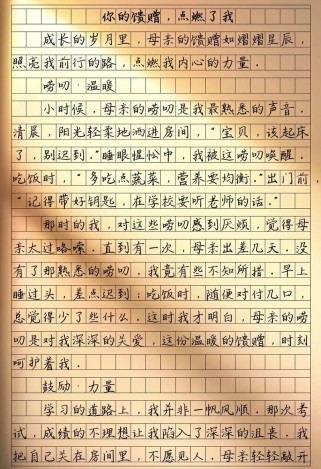 你的馈赠，点燃了我
成长的岁月里，母亲的馈赠如熠熠星辰，
照亮我前行的路，点燃我内心的力量。
唠叨·温暖
小时候，母亲的唠叨是我最熟悉的声音。
清晨，阳光轻柔地洒进房间，“宝贝，该起床
了，别迟到。”睡眼惺忪中，我被这唠叨唤醒。
吃饭时，“多吃点蔬菜，营养要均衡。”出门前，
“记得带好钥匙，在学校要听老师的话。”
那时的我，对这些唠叨感到厌烦，觉得母
亲太过啰嗦。直到有一次，母亲出差几天。没
有了那熟悉的唠叨，我竟有些不知所措。早上
睡过头，差点迟到；吃饭时，随便对付几口，
总觉得少了些什么。这时我才明白，母亲的唠
叨是对我深深的关爱，这份温暖的馈赠，时刻
呵护着我。
鼓励·力量
学习的道路上，我并非一帆风顺。那次考
试，成绩的不理想让我陷入了深深的沮丧。我
把自己关在房间里，不愿见人。母亲轻轻敲开